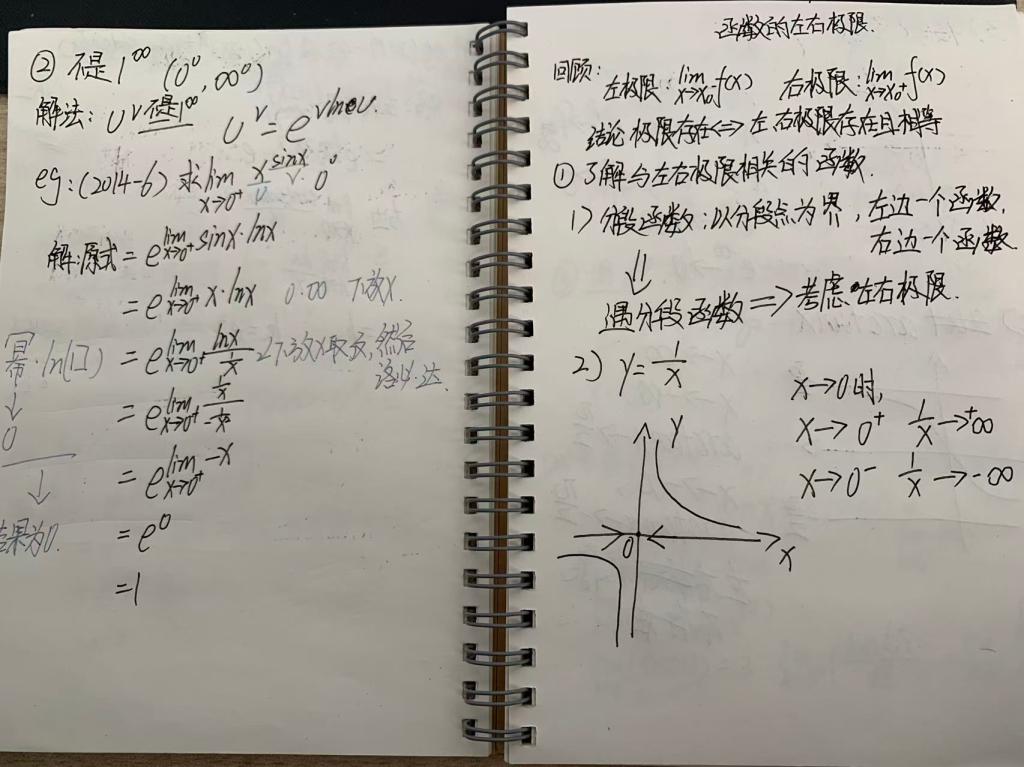 ② 不是1^∞ (0^0, ∞^0)
解法: U^V 不是1^∞ U^V = e^{vlnu}
eg: (2014-6) 求 lim_{x→0+} x^{sinx} 0^0
U V
解:原式 = e^{lim_{x→0+} sinx·lnx}
= e^{lim_{x→0+} x·lnx} 0·∞ 下放x.
幂·ln(口) = e^{lim_{x→0+} \frac{lnx}{\frac{1}{x}}} 下放x取反,然后
洛必达.
↓
0
= e^{lim_{x→0+} \frac{\frac{1}{x}}{-\frac{1}{x^2}}}
= e^{lim_{x→0+} -x}
↓
结果为0.
= e^0
=1
函数的左右极限.
回顾: 左极限: lim_{x→x_0^-} f(x) 右极限: lim_{x→x_0^+} f(x)
结论 极限存在⇔左、右极限存在且相等
① 了解与左右极限相关的函数.
1) 分段函数;以分段点为界,左边一个函数,
右边一个函数.
⇓
遇分段函数⇒考虑左右极限.
2) y=\frac{1}{x}
x→0时,
x→0^+ \frac{1}{x}→+∞
x→0^- \frac{1}{x}→-∞
y
0
x